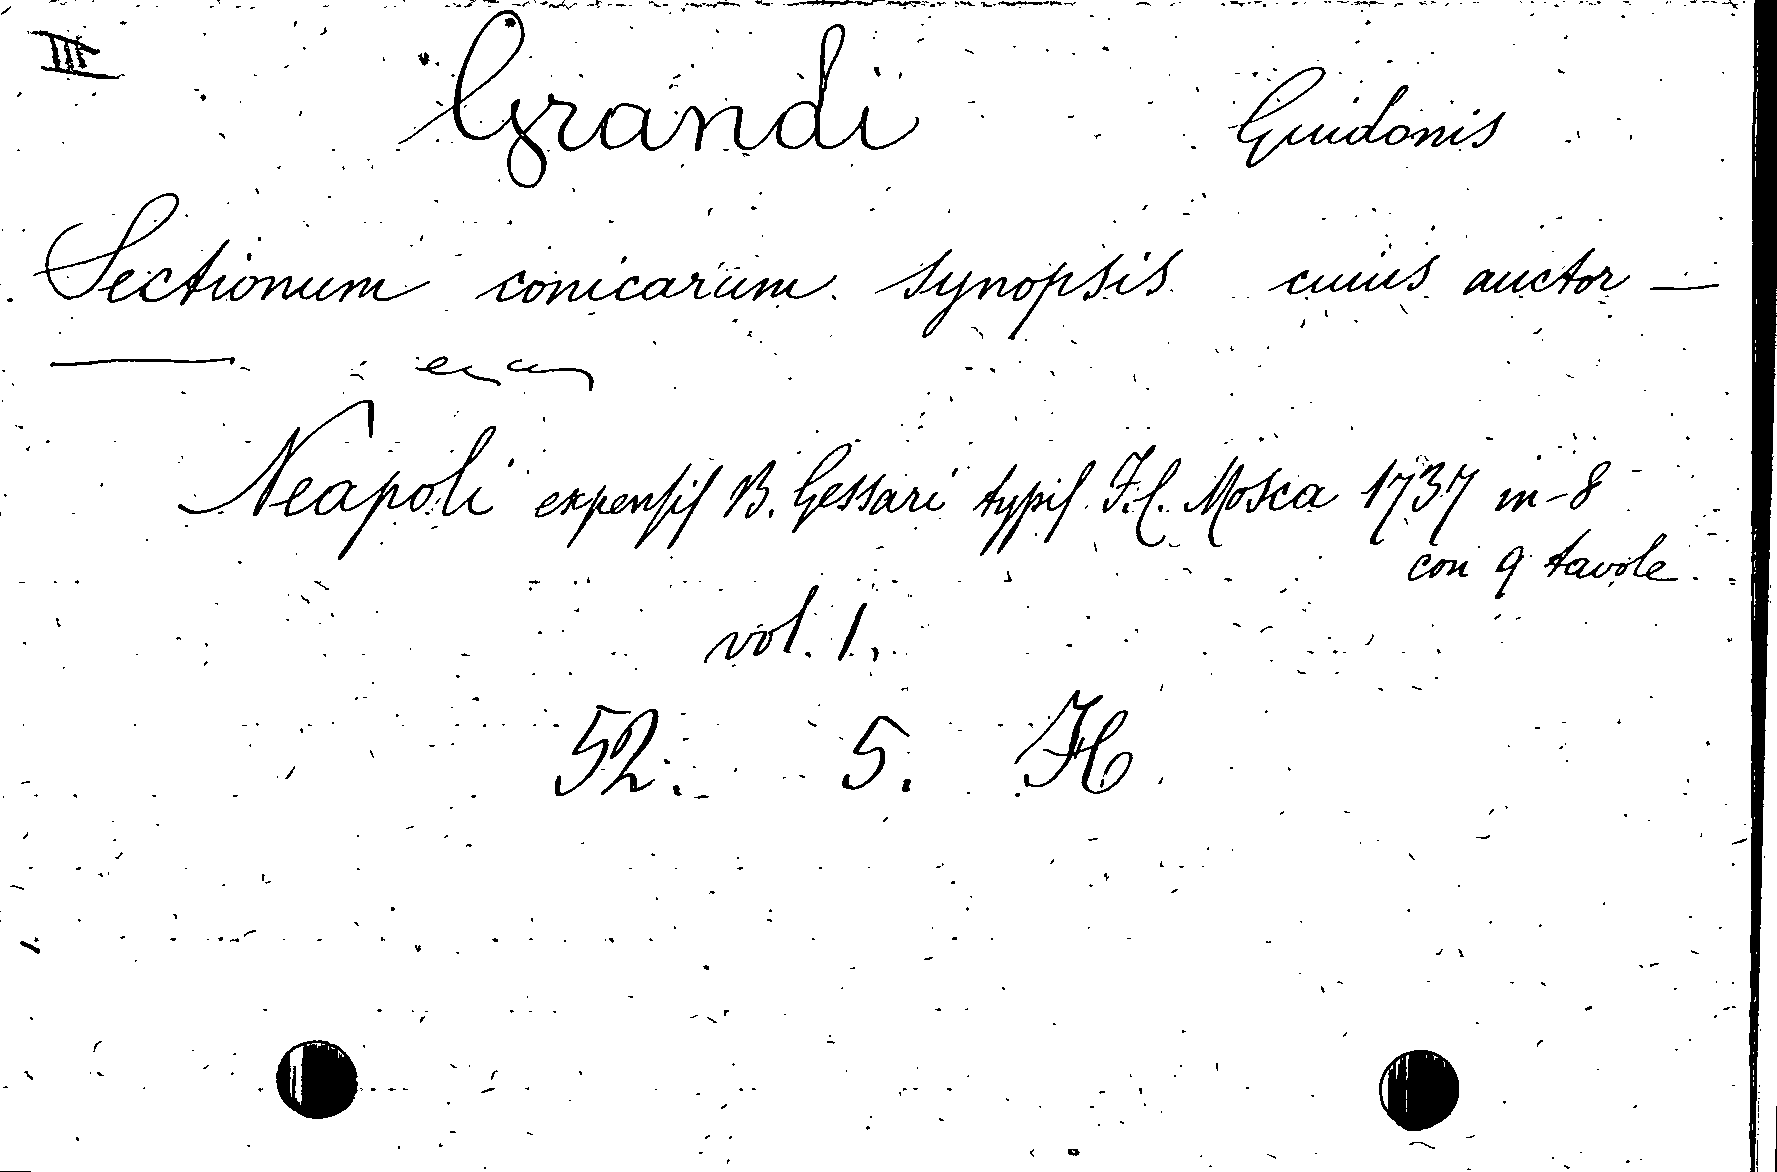 III
Grandi Guidonis
Sectionum conicarum synopsis cuius auctor —
—
Neapoli expensis B. Gessari typis F. C. Mosca 1737 in-8
con 9 tavole
vol. 1.
52. 5. H